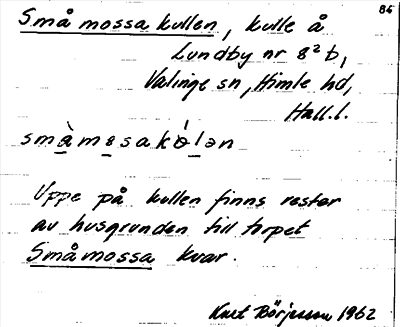 84
Små mossa kullen, kulle å
Lundby nr 8²b,
Valinge sn, Himle hd,
Hall.l.
Uppe på kullen finns rester
av husgrunden till torpet
Småmossa kvar.
Kurt Börjesson 1962